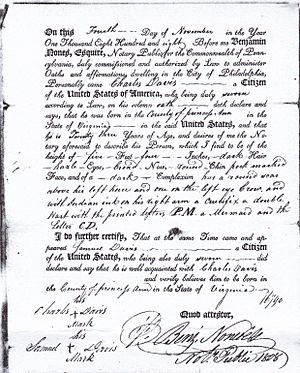 On this Fourth Day of November in the Year
One Thousand Eight Hundred and eight, Before me Benjamin
Nones, Esquire, Notary Public for the Commonwealth of Penn-
sylvania, duly commissioned and authorized by Law to administer
Oaths and affirmations, dwelling in the City of Philadelphia,
Personally came Charles Davis a Citizen
of the United States of America, who being duly sworn
according to Law, on his solemn oath doth declare and
say, that he was born in the County of princess Ann
in the State of Virginia in the said United States; and that
he is Twenty three Years of Age, and desires of me the No-
tary aforesaid to describe his Person, which I find to be of the
height of five Feet four Inches, dark Hair
dark Eyes, Nose, round Chin, pock marked
Face, and of a dark Complexion has a round scar
above his left knee and one on the left eye brow, and
with Indian ink on his right arm a Crucifix a double
Hart with the printed letters P.M. a Mermaid and the
Letter C.D.
I do further certify, That at the same Time came and ap-
peared Samuel Davis a Citizen
of the United States, who being also duly sworn did
declare and say that he is well acquainted with Charles Davis
and verily believes him to be born in the
County of princess Ann in the State of Virginia
his
Charles + Davis
Mark
his
Samuel + Davis
Mark
Quod attestor,
Benj Nones
Not. Public 1808